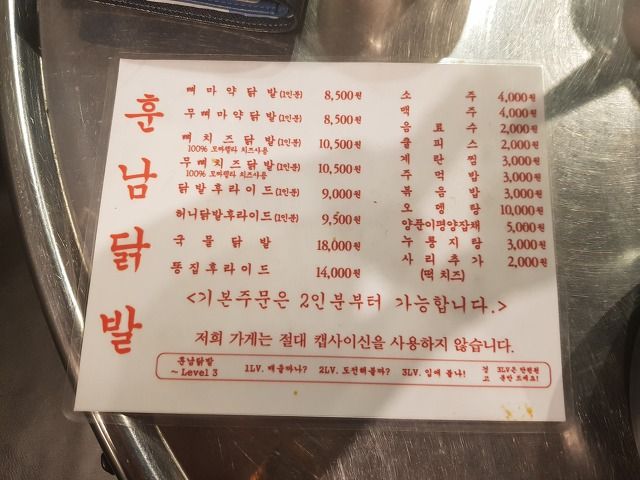 훈남닭발
뼈마약닭발(1인분) 8,500원
무뼈마약닭발(1인분) 8,500원
뼈치즈닭발(1인분) 10,500원
100% 모짜렐라 치즈사용
무뼈치즈닭발(1인분) 10,500원
100% 모짜렐라 치즈사용
닭발후라이드(1인분) 9,000원
허니닭발후라이드(1인분) 9,500원
국물닭발 18,000원
똥집후라이드 14,000원
소주 4,000원
맥주 4,000원
음료수 2,000원
쿨피스 2,000원
계란찜 3,000원
주먹밥 3,000원
볶음밥 3,000원
오뎅탕 10,000원
양푼이평양잡채 5,000원
누룽지탕 3,000원
사리추가 2,000원
(떡 치즈)
<기본주문은 2인분부터 가능합니다.>
저희 가게는 절대 캡사이신을 사용하지 않습니다.
훈남닭발
~ Level 3
1LV. 매울까나? 2LV. 도전해볼까? 3LV. 입에 불나!
경고 3LV은 만원원
유만 드세요!